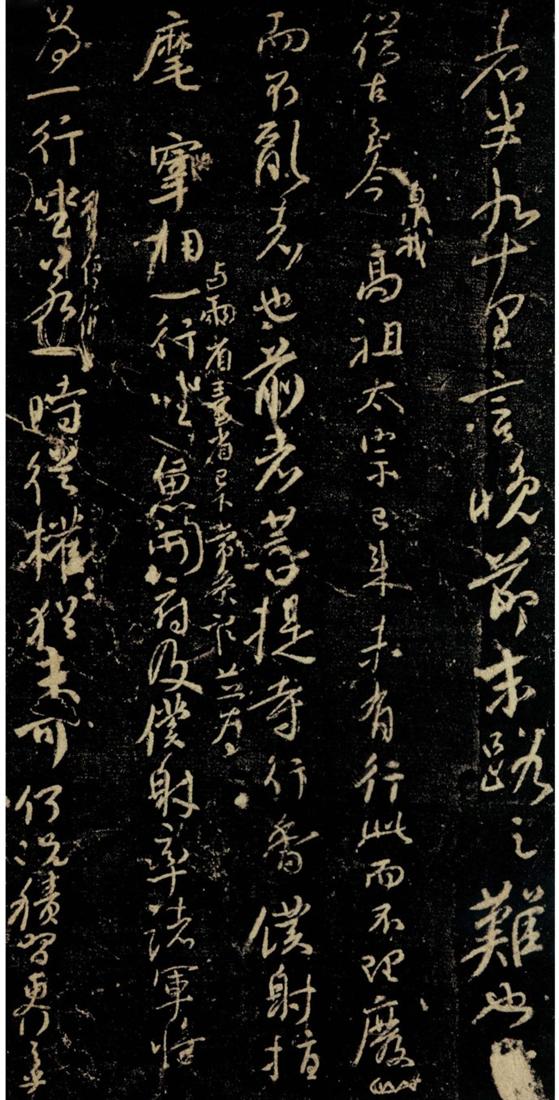 者半九十里言晚節末路之難也
從古至今臮我高祖太宗已來未有行此而不理廢
而不亂者也前者菩提寺行香僕射指
麾宰相與兩省臺省已下常參官並為一行坐魚開府及僕射率諸軍將
為一行坐若一時從權猶未可何況積習更行之乎